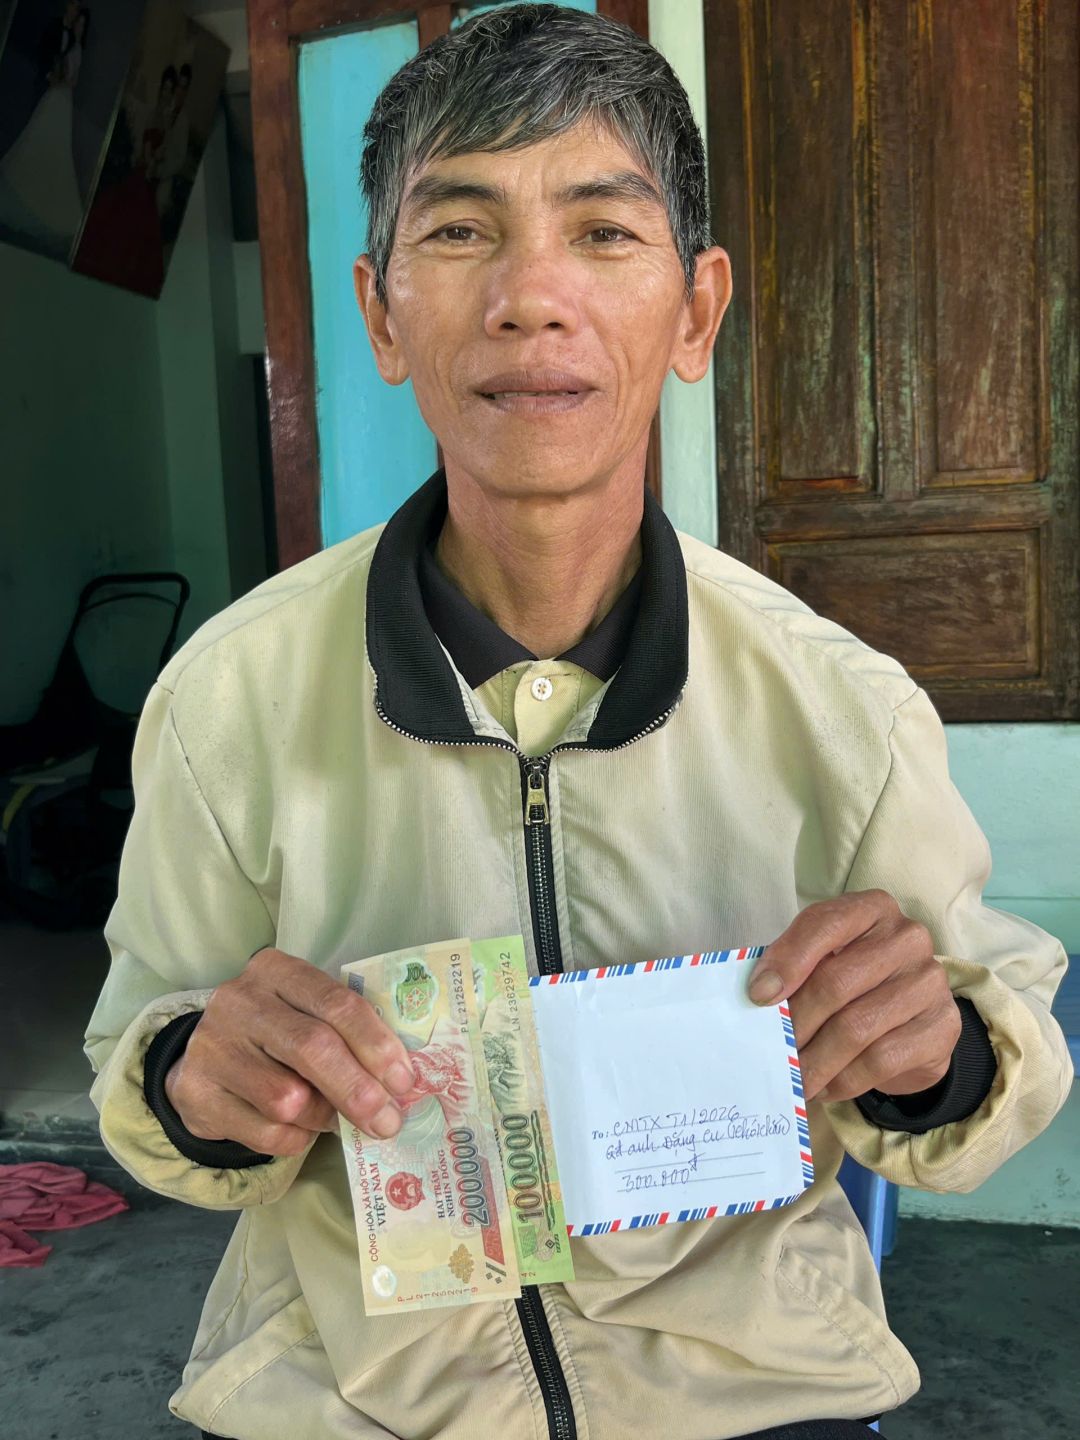 PL 21252219
LN 23629742
CỘNG HÒA XÃ HỘI CHỦ NGHĨA
VIỆT NAM
HAI TRĂM
NGHÌN ĐỒNG
200000
100000
PL 21252219
42
To: CNTX T1/2026
gđ anh Đặng Cu (
300.000đ